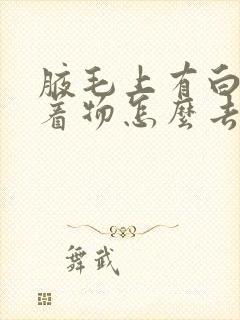 腋毛上有白
着物怎麼去
舞武